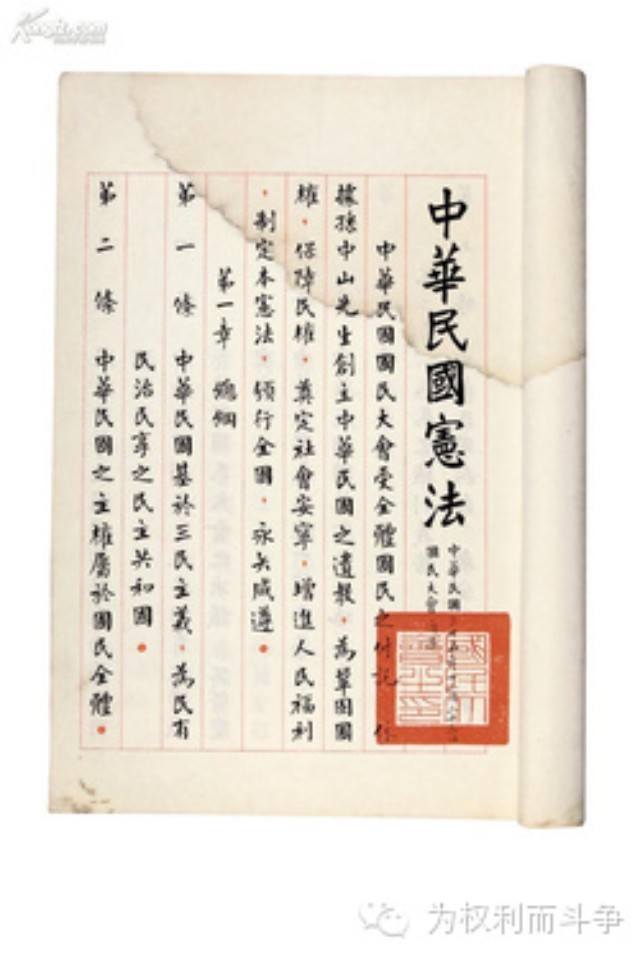 Kongfz.com
中華民國憲法
中華民國
國民大會
國民大會之印
中華民國國民大會受全體國民之付託 依
據孫中山先生創立中華民國之遺教,為鞏固國
權,保障民權,奠定社會安寧,增進人民福利
,制定本憲法,頒行全國,永矢咸遵。
第一章 總綱
第一條 中華民國基於三民主義,為民有
民治民享之民主共和國。
第二條 中華民國之主權屬於國民全體。
为权利而斗争